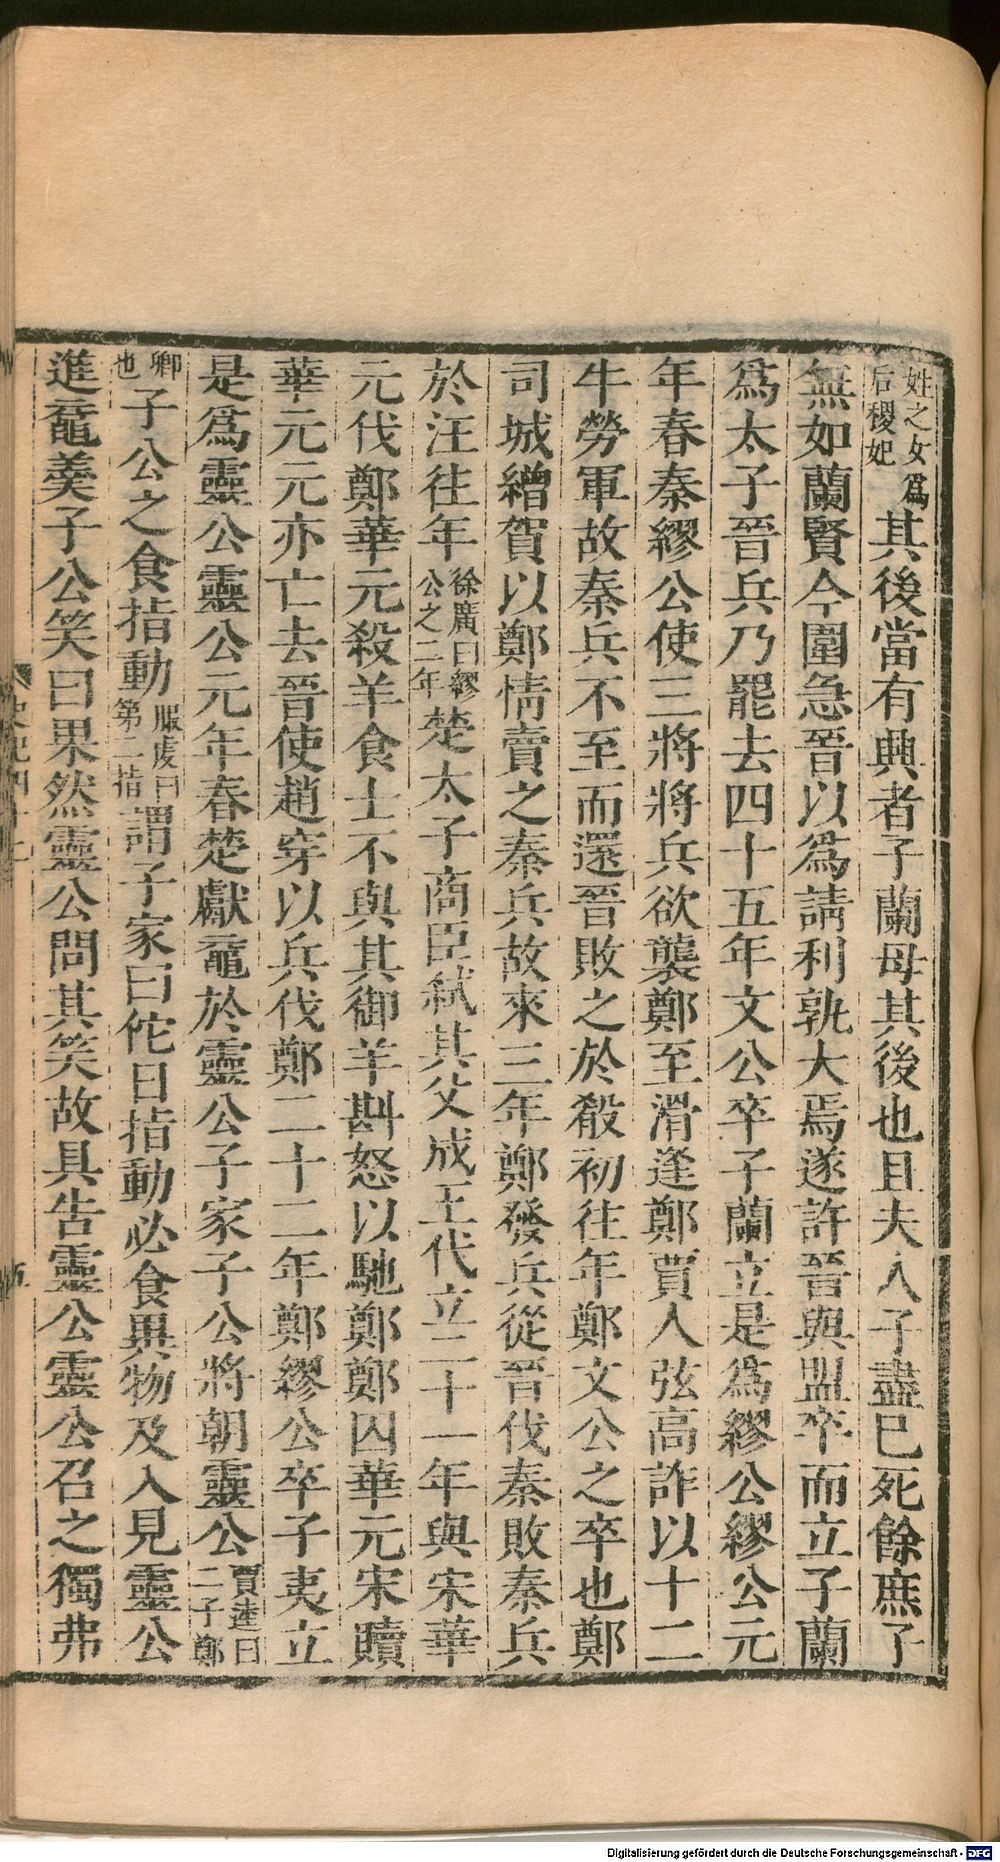 姓之女爲后稷妃其後當有興者子蘭母其後也且夫人子盡已死餘庶子
無如蘭賢今圍急晉以爲請利孰大焉遂許晉與盟卒而立子蘭
爲太子晉兵乃罷去四十五年文公卒子蘭立是爲繆公繆公元
年春秦繆公使三將將兵欲襲鄭至滑逢鄭賈人弦高詐以十二
牛勞軍故秦兵不至而還晉敗之於殽初往年鄭文公之卒也鄭
司城繒賀以鄭情賣之秦兵故來三年鄭發兵從晉伐秦敗秦兵
於汪往年徐廣曰繆公之二年楚太子商臣弑其父成王代立二十一年與宋華
元伐鄭華元殺羊食士不與其御羊斟怒以馳鄭鄭囚華元宋贖
華元元亦亡去晉使趙穿以兵伐鄭二十二年鄭繆公卒子夷立
是爲靈公靈公元年春楚獻黿於靈公子家子公將朝靈公賈逵曰二子鄭
卿也子公之食指動服虔曰第二指謂子家曰佗日指動必食異物及入見靈公
進黿羹子公笑曰果然靈公問其笑故具告靈公靈公召之獨弗
史記四十二
五
Digitalisierung gefördert durch die Deutsche Forschungsgemeinschaft - DFG